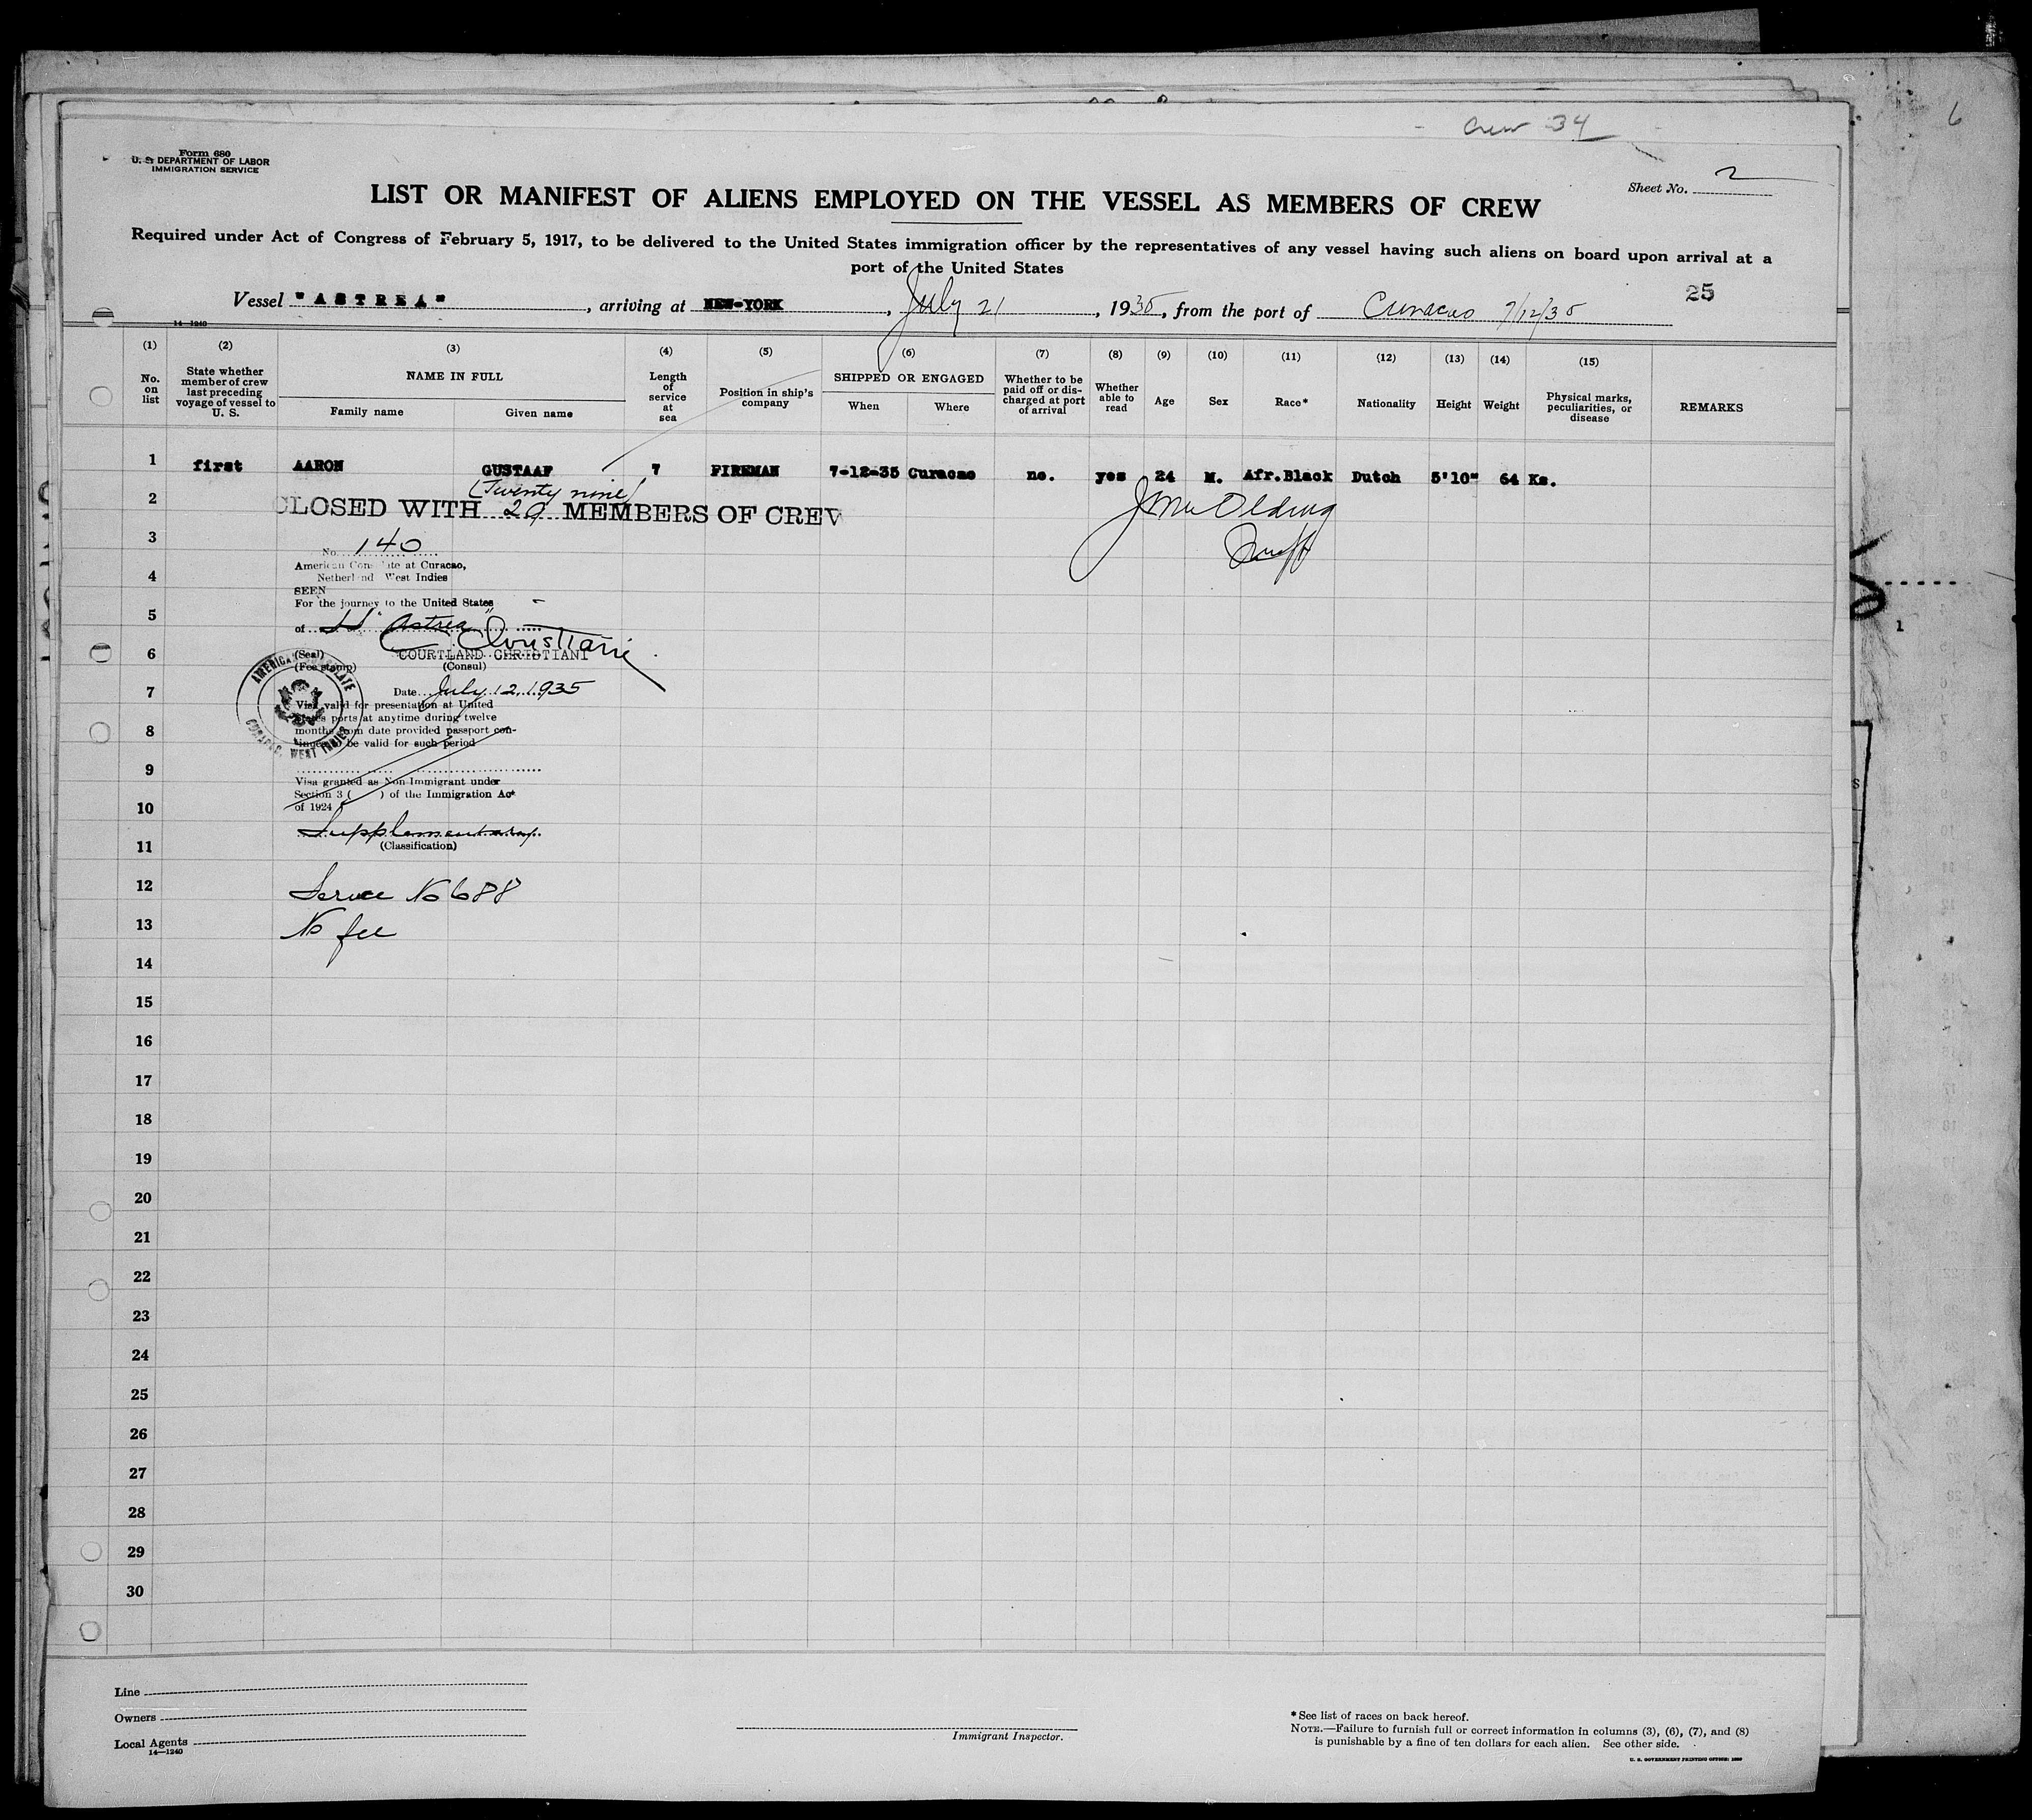 Crew 34
6
Form 680
U. S. DEPARTMENT OF LABOR
IMMIGRATION SERVICE
Sheet No. 2
LIST OR MANIFEST OF ALIENS EMPLOYED ON THE VESSEL AS MEMBERS OF CREW
Required under Act of Congress of February 5, 1917, to be delivered to the United States immigration officer by the representatives of any vessel having such aliens on board upon arrival at a
port of the United States
25
Vessel "ASTREA", arriving at NEW-YORK, July 21, 1935, from the port of Curacao 7/12/35
14-1240
(1) (2) (3) (4) (5) (6) (7) (8) (9) (10) (11) (12) (13) (14) (15)
No. on list
State whether member of crew last preceding voyage of vessel to U. S.
NAME IN FULL
Family name
Given name
Length of service at sea
Position in ship's company
SHIPPED OR ENGAGED
When
Where
Whether to be paid off or discharged at port of arrival
Whether able to read
Age
Sex
Race*
Nationality
Height
Weight
Physical marks, peculiarities, or disease
REMARKS
1 first AARON GUSTAAF 7 FIREMAN 7-12-35 Curacao no. yes 24 M. Afr.Black Dutch 5'10" 64 Ks.
(Twenty nine)
2 CLOSED WITH 29 MEMBERS OF CREW
3
No. 140
American Consulate at Curacao,
4
Netherland West Indies
SEEN
For the journey to the United States
5
of SS "Astrea"
C Christiani
6
(Seal) COURTLAND CHRISTIANI
(Fee stamp) (Consul)
AMERICAN CONSULATE
CURAÇAO, WEST INDIES
7
Date July 12, 1935
Visa valid for presentation at United
States ports at anytime during twelve
8
months from date provided passport con-
tinues to be valid for such period
9
Visa granted as Non Immigrant under
Section 3 ( ) of the Immigration Act
10
of 1924
Supplementary
11
(Classification)
12
Service No 688
13
No fee
14
15
16
17
18
19
20
21
22
23
24
25
26
27
28
29
30
Line
Owners
Local Agents
14-1240
Immigrant Inspector.
* See list of races on back hereof.
NOTE.—Failure to furnish full or correct information in columns (3), (6), (7), and (8)
is punishable by a fine of ten dollars for each alien. See other side.